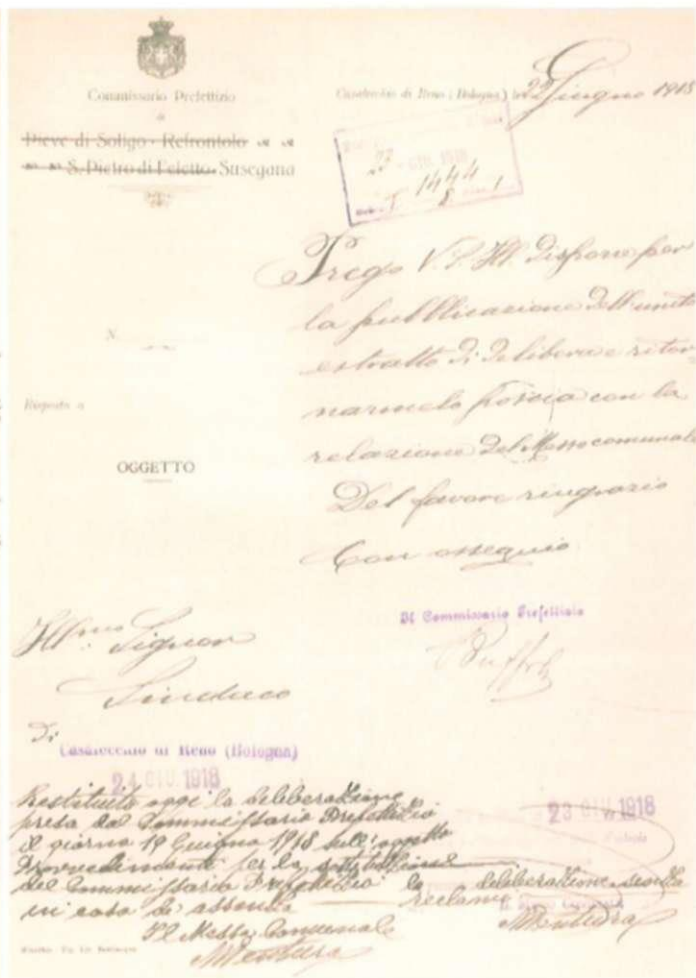 Commissario Prefettizio
di
Pieve di Soligo - Refrontolo
S. Pietro di Feletto - Susegana
Casalecchio di Reno (Bologna) li 22 Giugno 1918
23 GIU. 1918
1444
8 1
Prego V. S. Ill. disporre per
la pubblicazione dell'unito
estratto di delibera e ritor-
narmelo poscia con la
relazione del Messo comunale
Del favore ringrazio
Con ossequio
N.
Risposta a
OGGETTO
Il Commissario Prefettizio
Ill.mo Signor
Sindaco
Di
Casalecchio di Reno (Bologna)
24 GIU. 1918
23 GIU. 1918
Restituito oggi la deliberazione
presa dal Commissario Prefettizio
il giorno 19 Giugno 1918 sull'oggetto
Provvedimenti per la sostituzione
del Commissario Prefettizio la deliberazione
in caso di assenza reclami
Il Messo Comunale